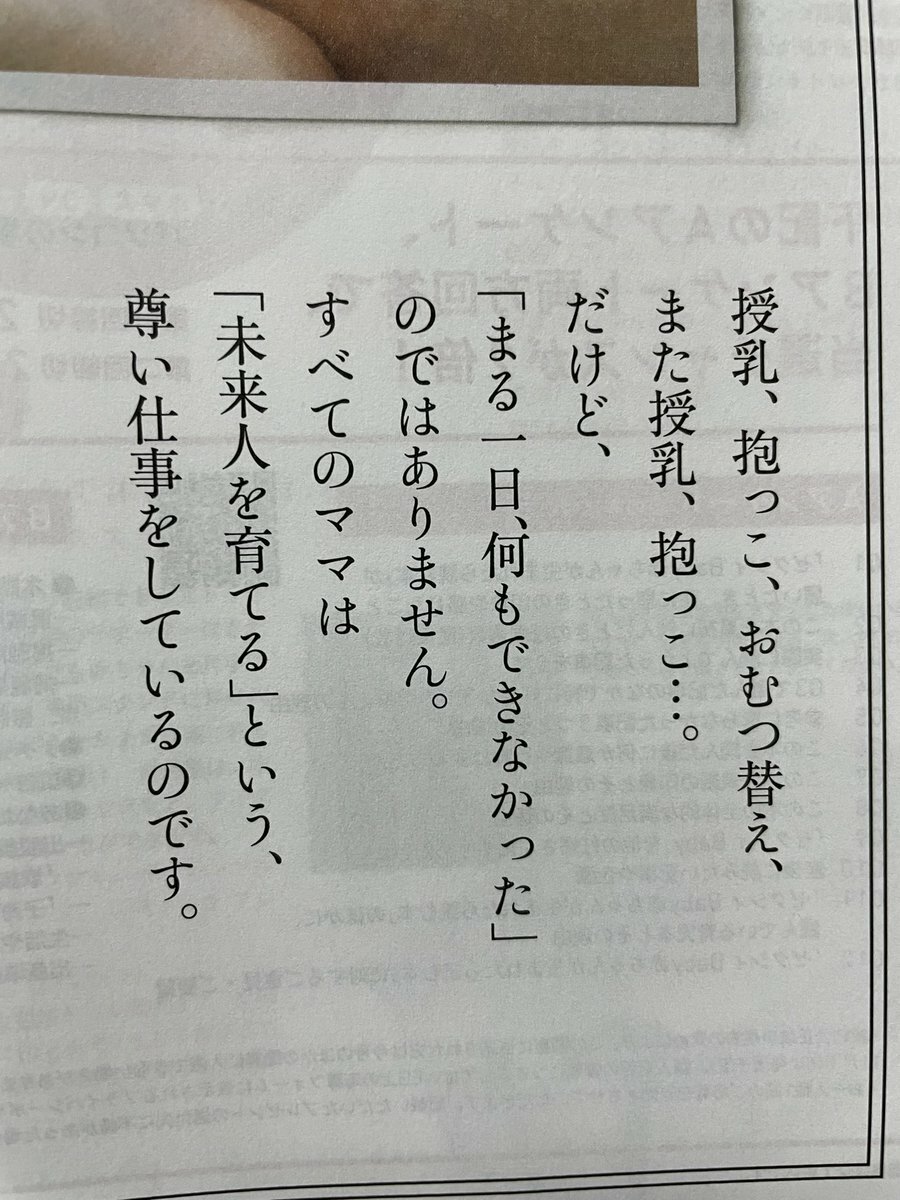 授乳、抱っこ、おむつ替え、
また授乳、抱っこ…。
だけど、
「まる一日、何もできなかった」
のではありません。
すべてのママは
「未来人を育てる」という、
尊い仕事をしているのです。